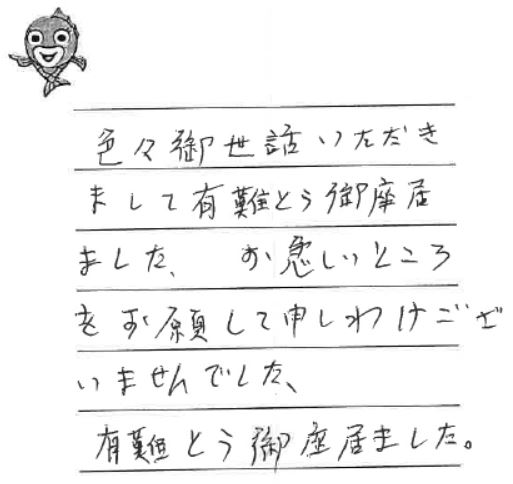 色々御世話いただき
まして有難とう御座居
ました、 お急しいところ
をお願して申しわけござ
いませんでした、
有難とう御座居ました。